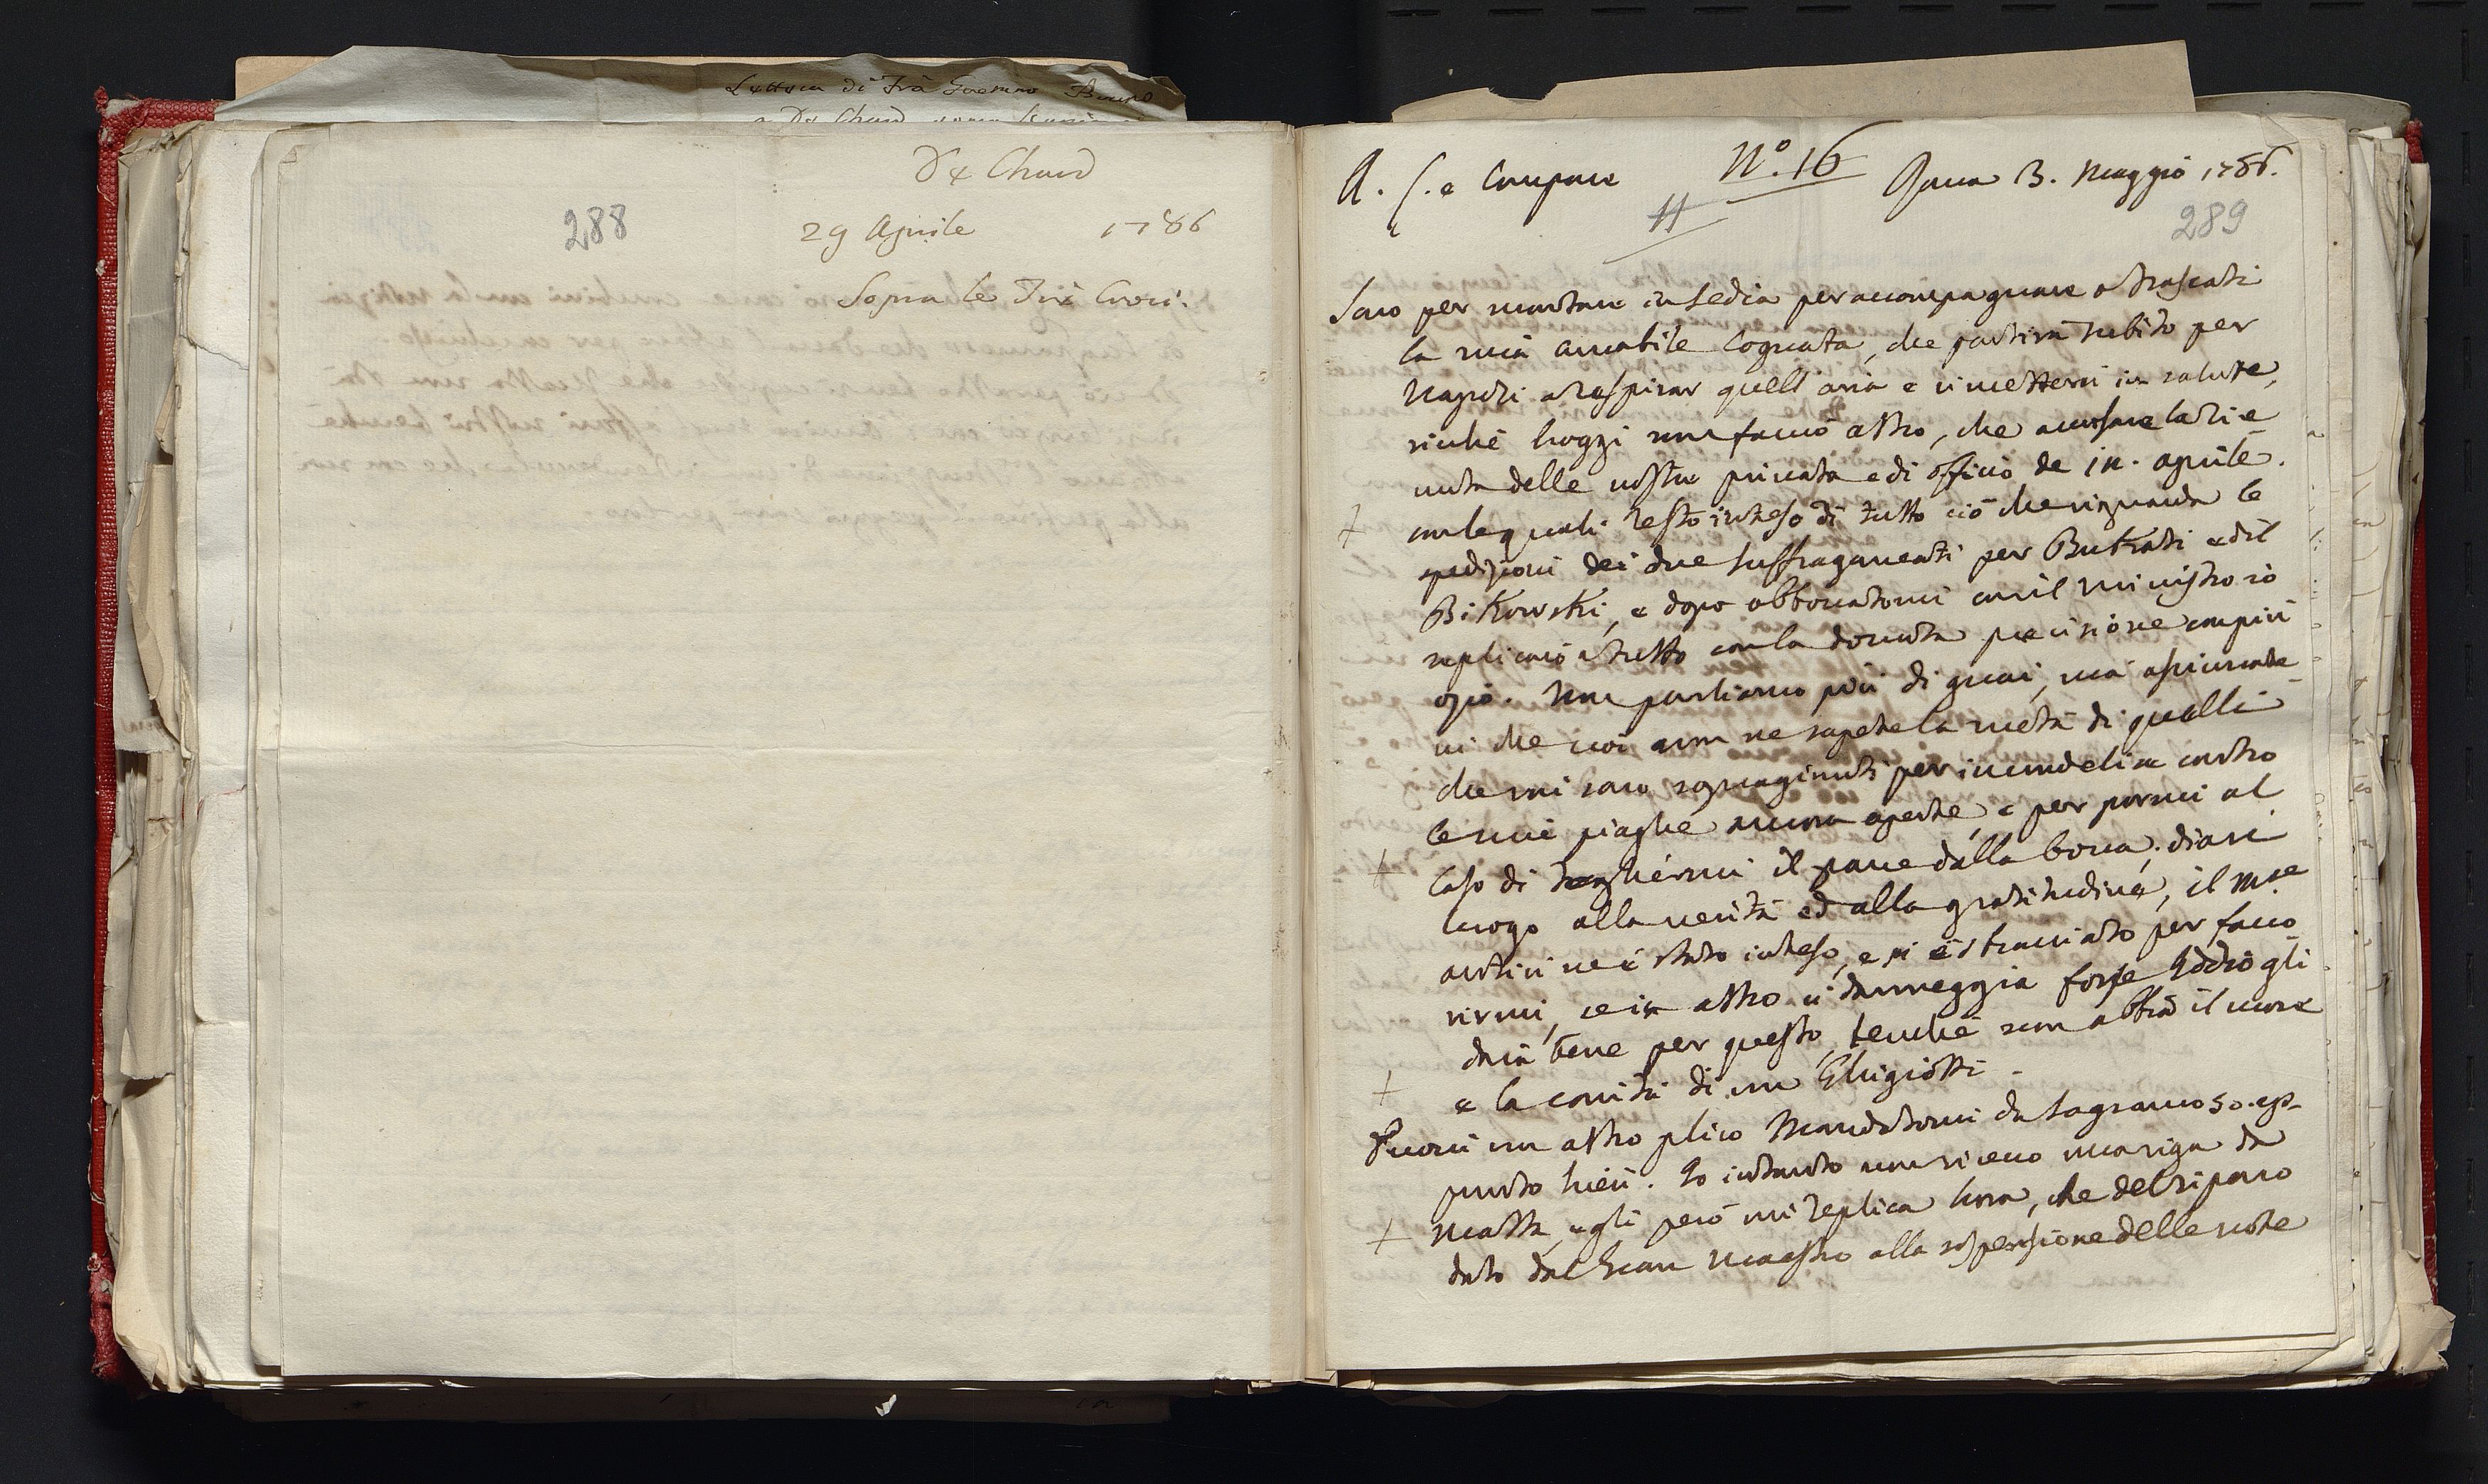 Lettera di Frà Gaetano Bruno
De Chaud
29 Aprile 1786
Sopra le Trè Croci.
288
A. C. e Compare
N.º 16
Roma 3. Maggio 1786.
11
289
Sono per montare in sedia per accompagnare a Frascati
la mia amabile Cognata, che partirà subito per
Napoli a respirar quell'aria e rimettersi in salute,
sicché hoggi non faccio altro, che accusare la rice
vuta delle vostre privata e di officio de 12. aprile.
+ colle quali resto inteso di tutto ciò che riguarda le
spedizioni dei due suffraganeati per Butrati ed il
Bikowski, e dopo abboccatomi con il Ministro io
replicarò a tutto con la dovuta precisione compiu
ogio. Non parliamo più di guai, ma assicurate
vi che voi non ne sapete la metà di quelli
che mi sono sopragiunti per incrudelire contro
le mie piaghe ancora aperte, e per pormi al
+ caso di togliermi il pane dalla bocca; diasi
luogo alla verità ed alla gratitudine, il Mse
Antici ne è stato inteso, e si è stracciato per favo
rirmi, se in altro ci danneggia forse Iddio gli
darà bene per questo, benché non abbia il cuore
+ e la carità di un Ghigiotti.
Riceverei un altro plico Mandatomi da Sagramoso ap-
punto hieri. Io intanto non ricevo una riga da
+ Malta, egli però mi replica hora, che del riparo
dato dal Gran Maestro alla sospensione delle note